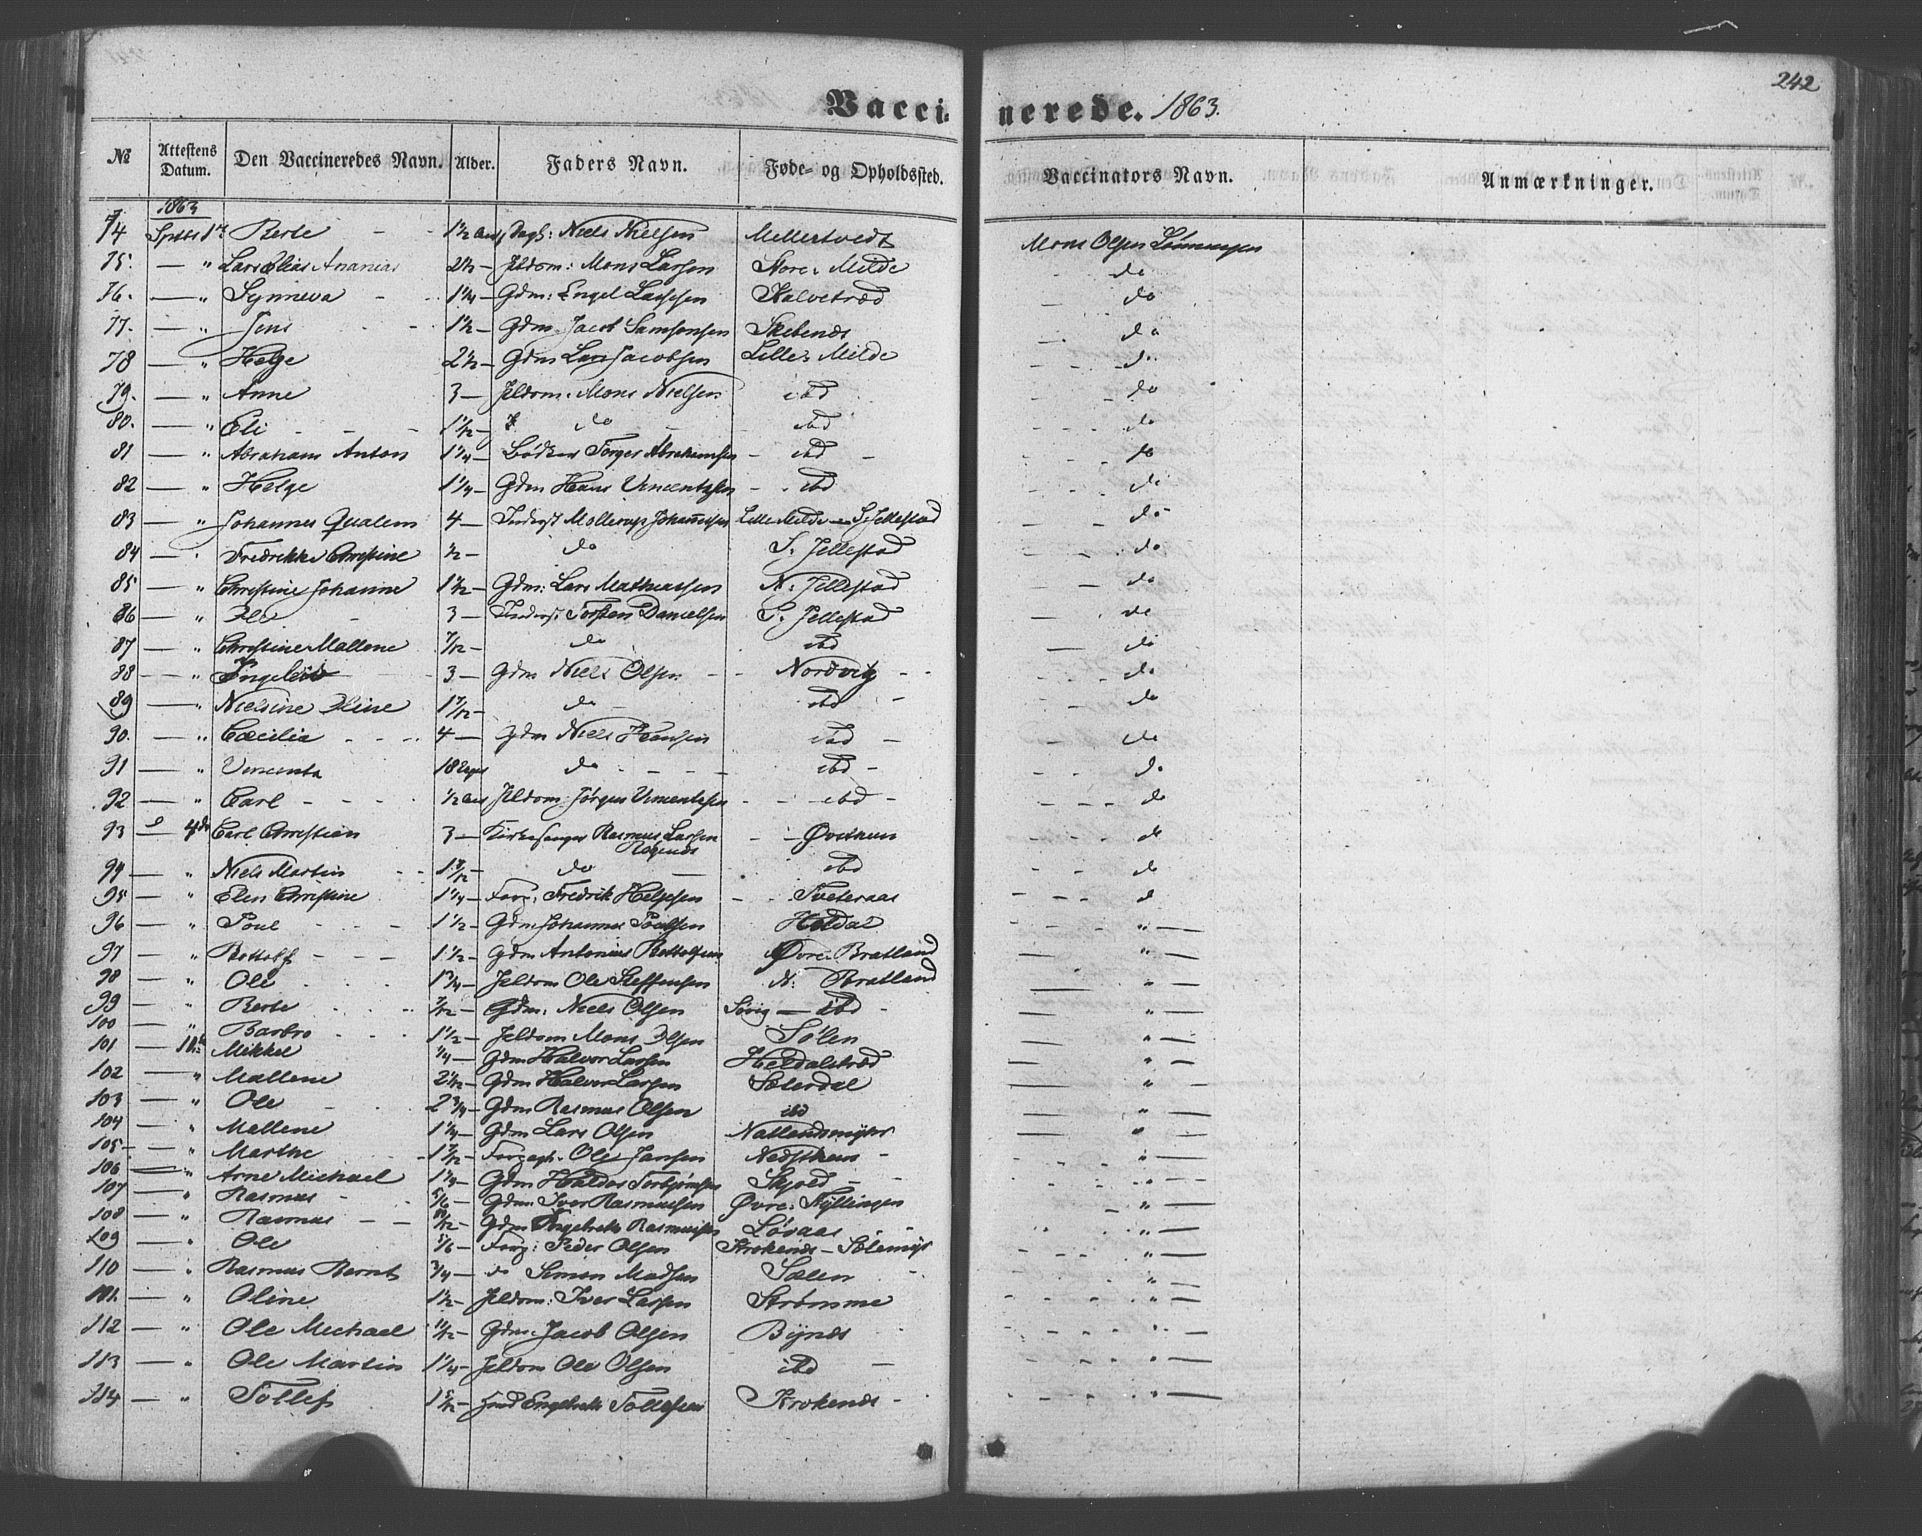 242
Vaccinerede. 1863.
№ Attestens Datum. Den Vaccineredes Navn. Alder. Faders Navn. Føde- og Opholdssted. Vaccinators Navn. Anmærkninger.
1863
74 Septbr 1ste Berte - - 1½ Niels Nielsen Mellestvedt Mons Olsen
75. — " Lars Elias Ananias 2½ — Jeldom: Mons Larsen Store-Milde do
76. — " Synneva - 1¼ — Gdm: Engel Larsen Kalvetræd do
77. — " Jens 1½ — Gdm. Jacob Samsonsen Skebends do
78 — " Helge 2½ — Gdm Lars Jacobsen Lille-Milde do
79. — " Anne 3 — Jeldom. Mons Nielsen ibd do
80. — " Eli - - - do ibd do
81 — " Abraham Anton 1¼ — Bødker Torger Abrahamsen ibd do
82 — " Helge 1¼ — Gdm Hans Vincentsen ibd do
83 — " Johannes Qualem 4 — Inderst Mollerup Johannesen Lille Milde — S. Jellestad do
84 — " Fredrikke Christine ½ — do S. Jellestad do
85 — " Christine Johanne 1½ — Gdm: Lars Mathiassen N. Jellestad do
86 — " Ole 3 — Inderst Torsten Danielsen S. Jellestad do
87 — " Christine Mallene 7/12 — do ibd do
88 — " 3 — Gdm Niels Olsen Nordvig do
89 — " Nielsine Oline 1 7/12 — do ibd do
90. — " Cæcilia 4 — Gdm Niels Hansen ibd do
91 — " Vincenta 18 do ibd do
92 — " Carl ½ Jeldom: Jørgen Vincentsen ibd do
93 — 4de Carl Christian 3 — Kirkesanger Rasmus Larsen Røgenæs Øvsthun do
94 — " Niels Martin do ibd do
95 — " Elen Christine 1¼ — Forp: Fredrik Helgesen Tveteraas d
96 — " Poul 1½ — Gdm Johannes Poulsen Heldal " —
97 — " Bottolf 1½ — Gdm Antonius Bottolfsen Øvre-Bratland " —
98 — " Ole 1¾ — Jeldom Ole Steffensen N: Bratland " —
99 — " Berte Gdm: Niels Olsen Søvig — ibd " —
100 — " Barbro 1½ — Jeldom Mons Olsen Sølen " —
101 — Mikkel ¼ — Gdm Halvor Larsen Heldalstræd " —
102 — " Mallene Gdm Halvor Larsen Sæterdal " —
103 — " Ole 2¾ — Gdm Rasmus Olsen ibd " —
104 — " Mallene 1¼ — Gdm Lars Olsen Natlandsmyhr " —
105 — " Marthe Ole Jansen Nedsthun " —
106 — " Arne Michael 1¼ — Gdm Haldor Torbjørnsen Skjold " —
107 — " Rasmus 5/6 — Gdm: Iver Rasmussen Øvre-Tyllingen " —
108 — " Rasmus Gdm Engelbrekt Rasmussen Løvaas " —
109 — " Ole 1/6 — Forp: Peder Olsen Krokends — Sølemyr " —
110 — " Rasmus Bernt ¾ — do Simon Madsen Sælen " —
111. — " Oline 1½ — Jeldom: Iver Larsen Strømme " —
112 — " Ole Michael 11/12 — Gdm: Jacob Olsen Bønes " —
113 — " Ole Martin 1¼ — Jeldom Ole Olsen ibd — " —
114 — " Tollef Engebrekt Tollefsen Krokends " —